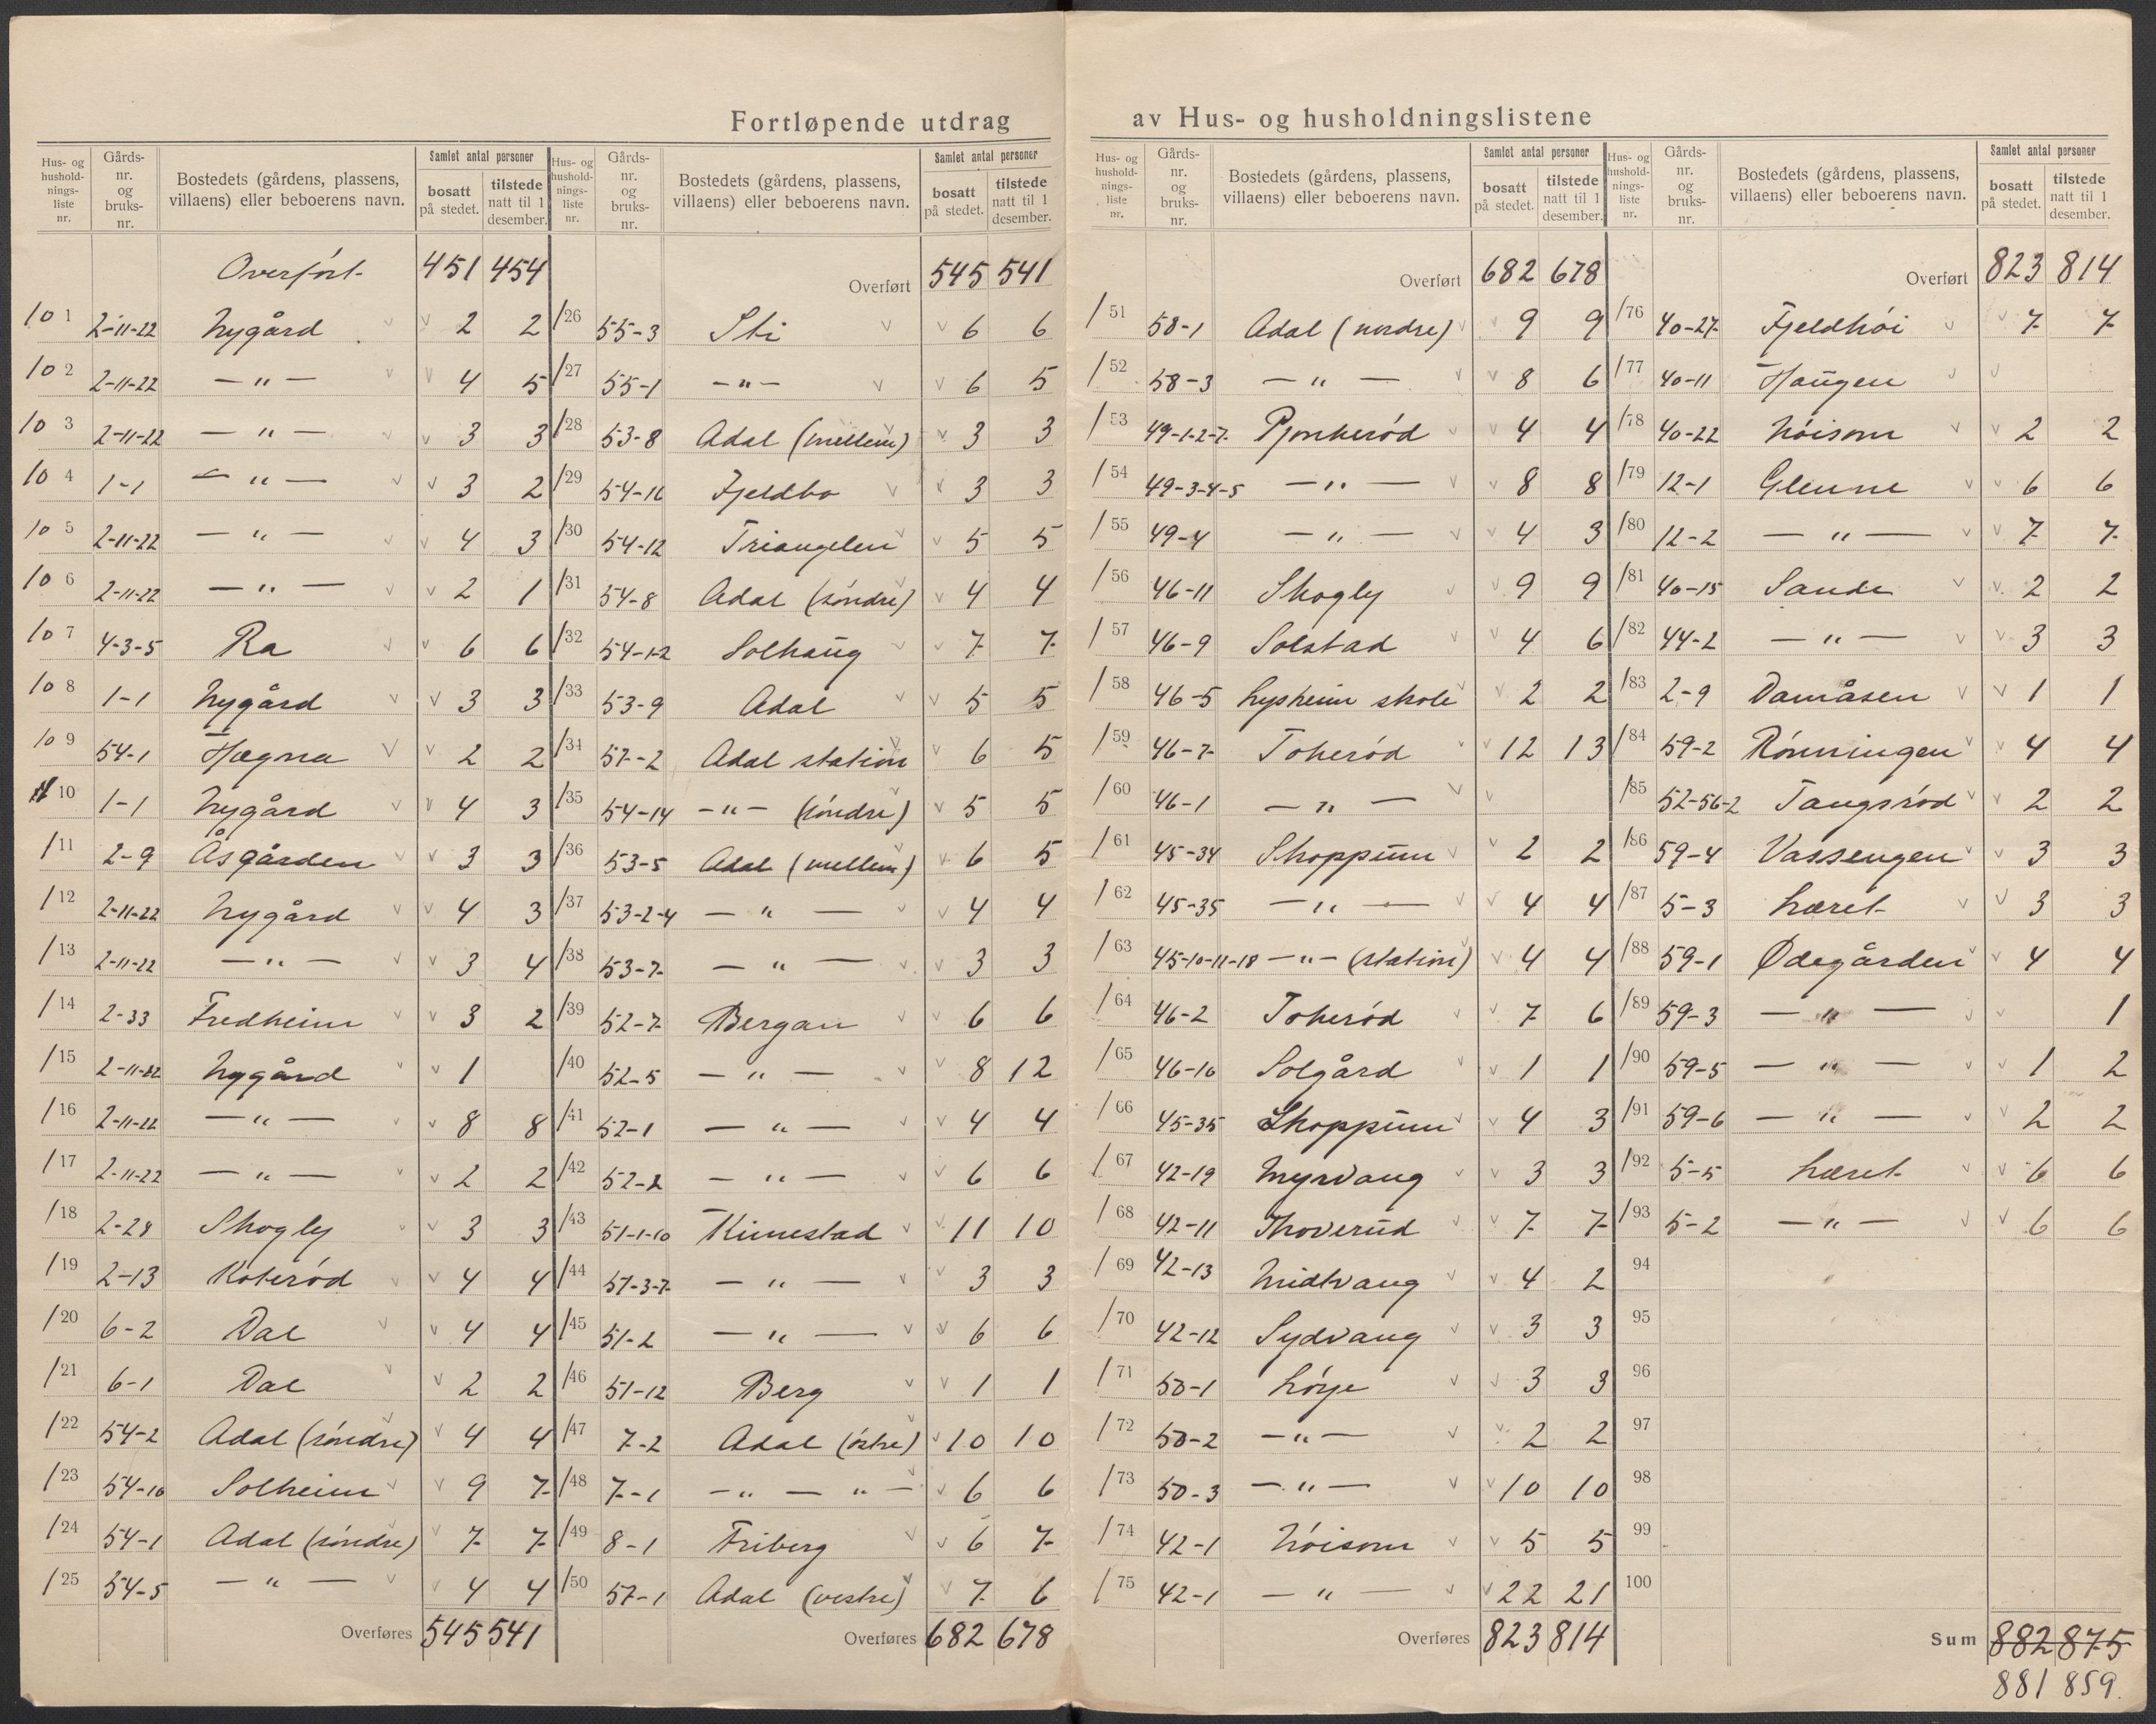 Fortløpende utdrag av Hus- og husholdningslistene
Hus- og hushold-nings-liste nr. Gårds-nr. og bruks-nr. Bostedets (gårdens, plassens, villaens) eller beboerens navn. Samlet antal personer bosatt på stedet. tilstede natt til 1 desember.
Overført 451 454
/0 1 2-11-22 Nygård 2 2
/0 2 2-11-22 — " — 4 5
/0 3 2-11-22 — " — 3 3
/0 4 1-1 — " — 3 2
/0 5 2-11-22 — " — 4 3
/0 6 2-11-22 — " — 2 1
/0 7 4-3-5 Ra 6 6
/0 8 1-1 Nygård 3 3
/0 9 54-1 Hægna 2 2
10 1-1 Nygård 4 3
/11 2-9 Åsgården 3 3
/12 2-11-22 Nygård 4 3
/13 2-11-22 — " — 3 4
/14 2-33 Fredheim 3 2
/15 2-11-22 Nygård 1
/16 2-11-22 — " — 8 8
/17 2-11-22 — " — 2 2
/18 2-28 Skogly 3 3
/19 2-13 Koterød 4 4
/20 6-2 Dal 4 4
/21 6-1 Dal 2 2
/22 54-2 Adal (søndre) 4 4
/23 54-10 Solheim 9 7
/24 54-1 Adal (søndre) 7 7
/25 54-5 — " — 4 4
Overføres 545 541
Hus- og hushold-nings-liste nr. Gårds-nr. og bruks-nr. Bostedets (gårdens, plassens, villaens) eller beboerens navn. Samlet antal personer bosatt på stedet. tilstede natt til 1 desember.
Overført 545 541
/26 55-3 Ski 6 6
/27 55-1 — " — 6 5
/28 53-8 Adal (mellem) 3 3
/29 54-16 Fjeldbo 3 3
/30 54-12 Triangelen 5 5
/31 54-8 Adal (søndre) 4 4
/32 54-12 Solhaug 7 7
/33 53-9 Adal 5 5
/34 57-2 Adal station 6 5
/35 54-14 — " — (søndre) 5 5
/36 53-5 Adal (mellem) 6 5
/37 53-2-4 — " — 4 4
/38 53-7 — " — 3 3
/39 52-7 Bergan 6 6
/40 52-5 — " — 8 12
/41 52-1 — " — 4 4
/42 52-2 — " — 6 6
/43 51-1-10 Kimestad 11 10
/44 51-3-7 — " — 3 3
/45 51-2 — " — 6 6
/46 51-12 Berg 1 1
/47 7-2 Adal (østre) 10 10
/48 7-1 — " — " — 6 6
/49 8-1 Friberg 6 7
/50 57-1 Adal (vestre) 7 6
Overføres 682 678
Hus- og hushold-nings-liste nr. Gårds-nr. og bruks-nr. Bostedets (gårdens, plassens, villaens) eller beboerens navn. Samlet antal personer bosatt på stedet. tilstede natt til 1 desember.
Overført 682 678
/51 58-1 Adal (nordre) 9 9
/52 58-3 — " — 8 6
/53 49-1-2-7 Pjonkerød 4 4
/54 49-3-4-5 — " — 8 8
/55 49-4 — " — 4 3
/56 46-11 Skogly 9 9
/57 46-9 Solstad 4 6
/58 46-5 Lysheim skole 2 2
/59 46-7 Tokerød 12 13
/60 46-1 — " —
/61 45-34 Skoppum 2 2
/62 45-35 — " — 4 4
/63 45-10-11-18 — " — (station) 4 4
/64 46-2 Tokerød 7 6
/65 46-16 Solgård 1 1
/66 45-35 Skoppum 4 3
/67 42-19 Myrvang 3 3
/68 42-11 Thoverud 7 7
/69 42-13 Midtvang 4 2
/70 42-12 Sydvang 3 3
/71 50-1 Løye 3 3
/72 50-2 — " — 2 2
/73 50-3 — " — 10 10
/74 42-1 Nøisom 5 5
/75 42-1 — " — 22 21
Overføres 823 814
Hus- og hushold-nings-liste nr. Gårds-nr. og bruks-nr. Bostedets (gårdens, plassens, villaens) eller beboerens navn. Samlet antal personer bosatt på stedet. tilstede natt til 1 desember.
Overført 823 814
/76 40-27 Fjeldhøi 7 7
/77 40-11 Haugen
/78 40-22 Nøisom 2 2
/79 12-1 Glenne 6 6
/80 12-2 — " — 7 7
/81 40-15 Sande 2 2
/82 44-2 — " — 3 3
/83 2-9 Damåsen 1 1
/84 59-2 Rønningen 4 4
/85 52-56-2 Tangsrød 2 2
/86 59-4 Vassengen 3 3
/87 5-3 Læret 3 3
/88 59-1 Ødegården 4 4
/89 59-3 — " — 1
/90 59-5 — " — 1 2
/91 59-6 — " — 2 2
/92 5-5 Læret 6 6
/93 5-2 — " — 6 6
94
95
96
97
98
99
100
Sum 882 875
881 859